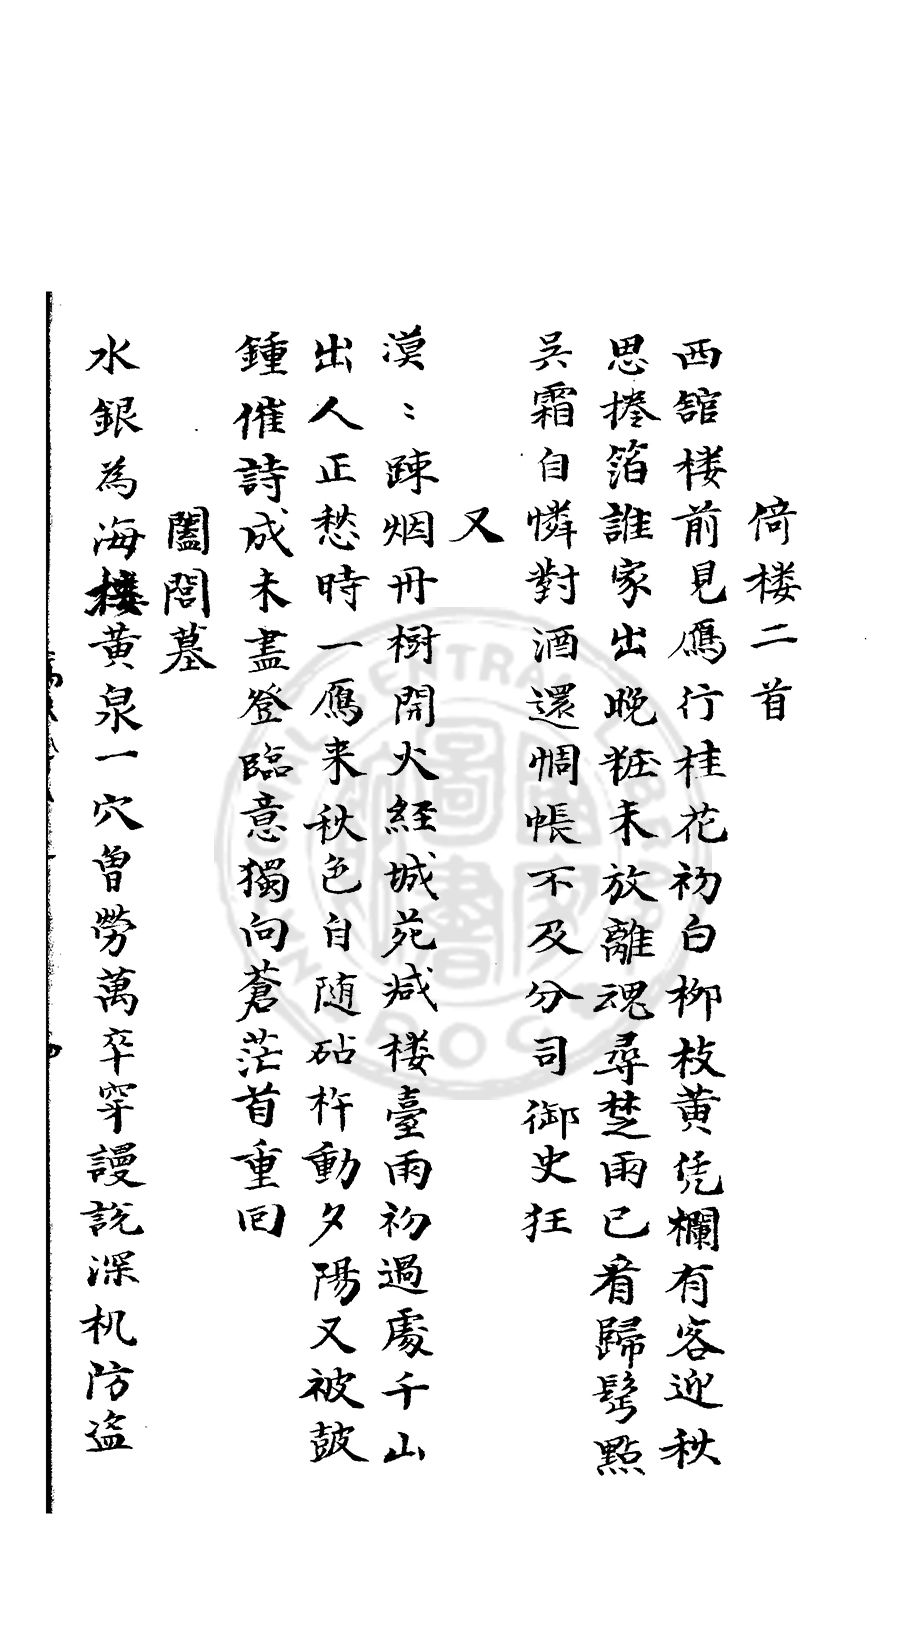 倚楼二首
西舘楼前見鴈行桂花初白柳枝黄凭欄有客迎秋
思捲箔誰家出晚粧未放離魂尋楚雨已看歸髩點
吳霜自憐對酒還惆悵不及分司御史狂
又
漠〻踈烟丹樹開火経城苑减楼臺雨初過處千山
出人正愁時一鴈来秋色自随砧杵動夕陽又被鼓
鍾催詩成未盡登臨意獨向蒼茫首重回
闔閭墓
水銀為海接黄泉一穴曽勞萬卒穿謾説深机防盗